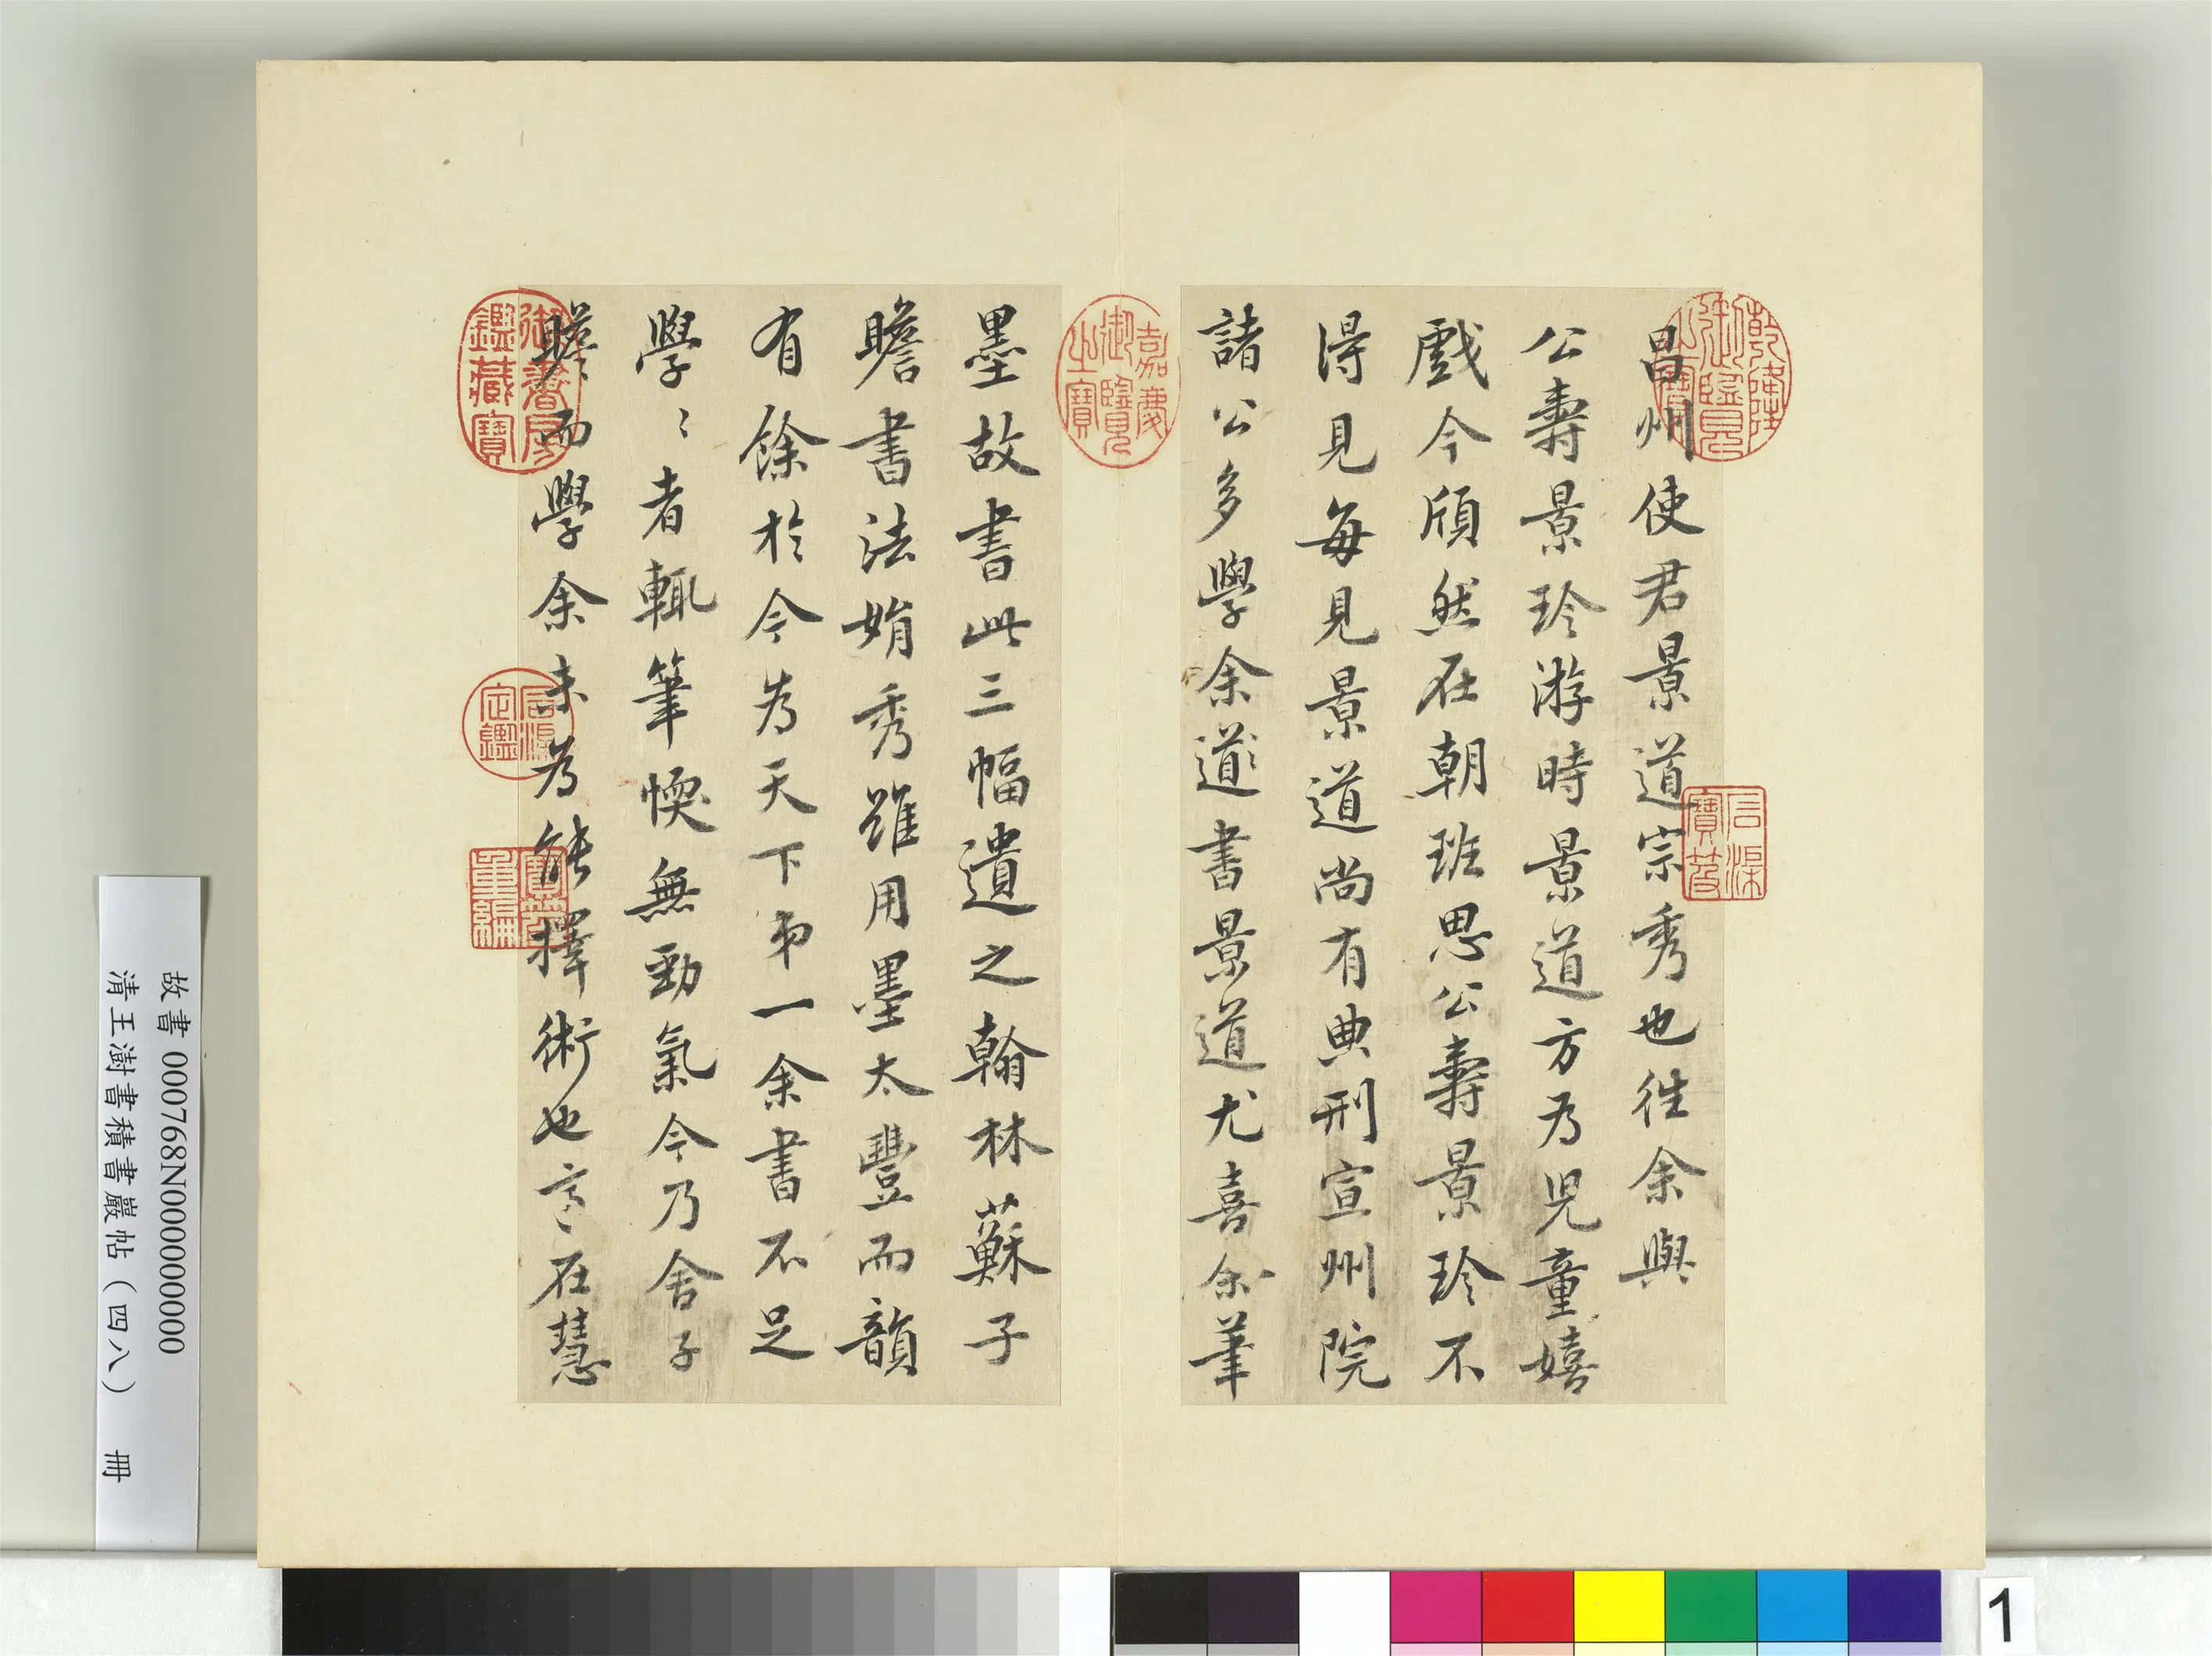 昌州使君景道宗秀也往余與
公壽景珍游時景道方為児童嬉
戲今頎然在朝班思公壽景珍不
得見每見景道尚有典刑宣州院
諸公多學余書景道尤喜余筆
墨故書此三幅遺之翰林蘇子
瞻書法娟秀雖用墨太豐而韻
有餘於今為天下第一余書不足
學〻者輒筆愞無勁氣今乃舍子
瞻而學余未為能擇術也言在慧
乾隆御覽之寶
石渠寶笈
嘉慶御覽之寶
御書房鑑藏寶
石渠定鑑
寶笈重編
故書 000768N000000000
清王澍書積書巖帖(四八) 冊
1